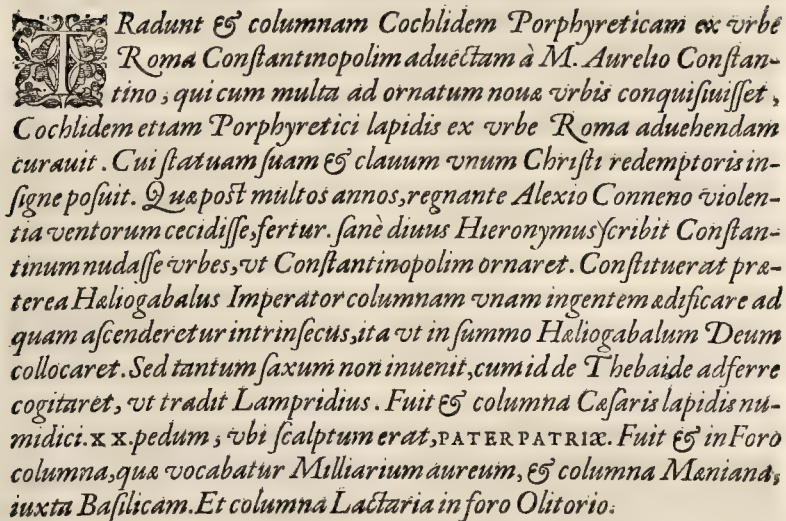 TRadunt & columnam Cochlidem Porphyreticam ex vrbe
Roma Conſtantinopolim aduectam à M. Aurelio Conſtan-
tino; qui cum multa ad ornatum nouæ vrbis conquiſiuiſſet,
Cochlidem etiam Porphyretici lapidis ex vrbe Roma aduehendam
curauit. Cui ſtatuam ſuam & clauum vnum Chriſti redemptoris in-
ſigne poſuit. Quæ poſt multos annos, regnante Alexio Conneno violen-
tia ventorum cecidiſſe, fertur. ſanè diuus Hieronymus ſcribit Conſtan-
tinum nudaſſe vrbes, vt Conſtantinopolim ornaret. Conſtituerat præ-
terea Hæliogabalus Imperator columnam vnam ingentem ædificare ad
quam aſcenderetur intrinſecus, ita vt in ſummo Hæliogabalum Deum
collocaret. Sed tantum ſaxum non inuenit, cum id de Thebaide adferre
cogitaret, vt tradit Lampridius. Fuit & columna Cæſaris lapidis nu-
midici. XX. pedum; vbi ſcalptum erat, PATER PATRIÆ. Fuit & in Foro
columna, quæ vocabatur Milliarium aureum, & columna Mæniana,
iuxta Baſilicam. Et columna Lactaria in foro Olitorio.